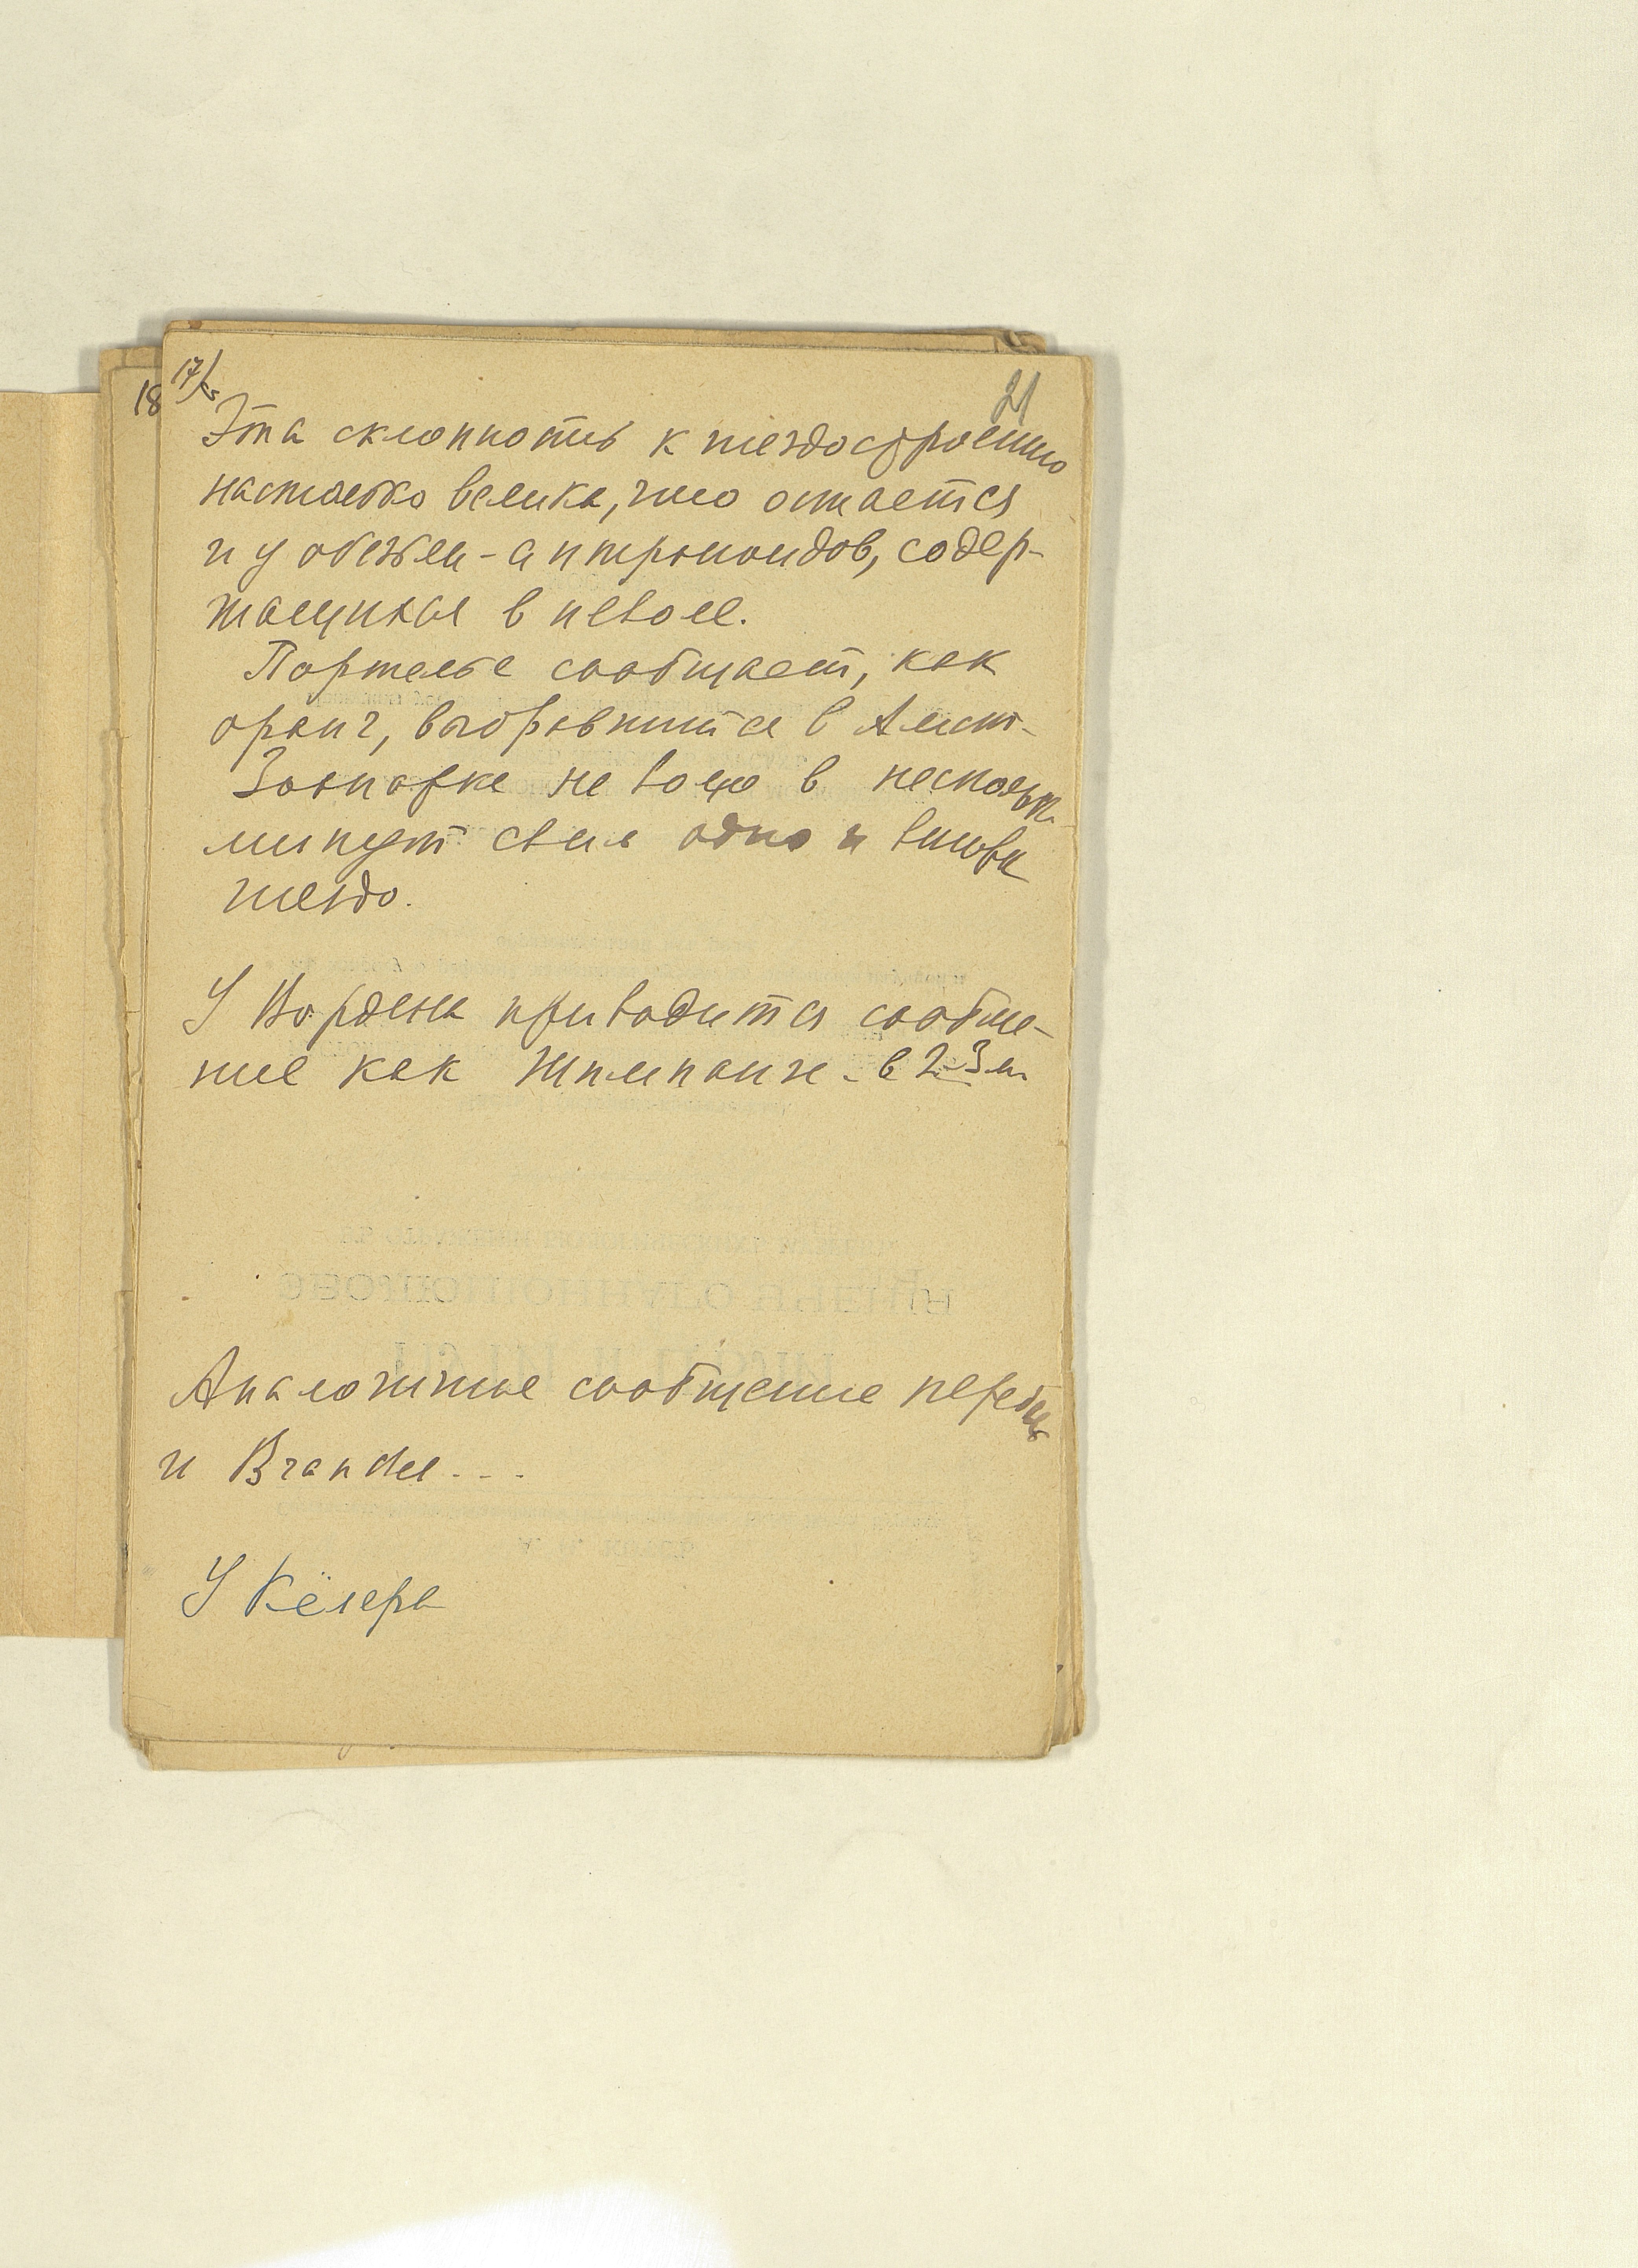 17/
21
18
Эта склонность к гнездостроению
настолько велика, что остается
и у обезьян-антропоидов, содер-
жащихся в неволе.
Портелье сообщает, как
оранг, выбравшийся в Амст.
Зоопарке на волю в несколько
минут свил одно и
гнездо.
У приводится сообще-
ние как Шимпанзе - в 2-3 м
Аналогичное сообщение
и Brandes...
У Кёлера